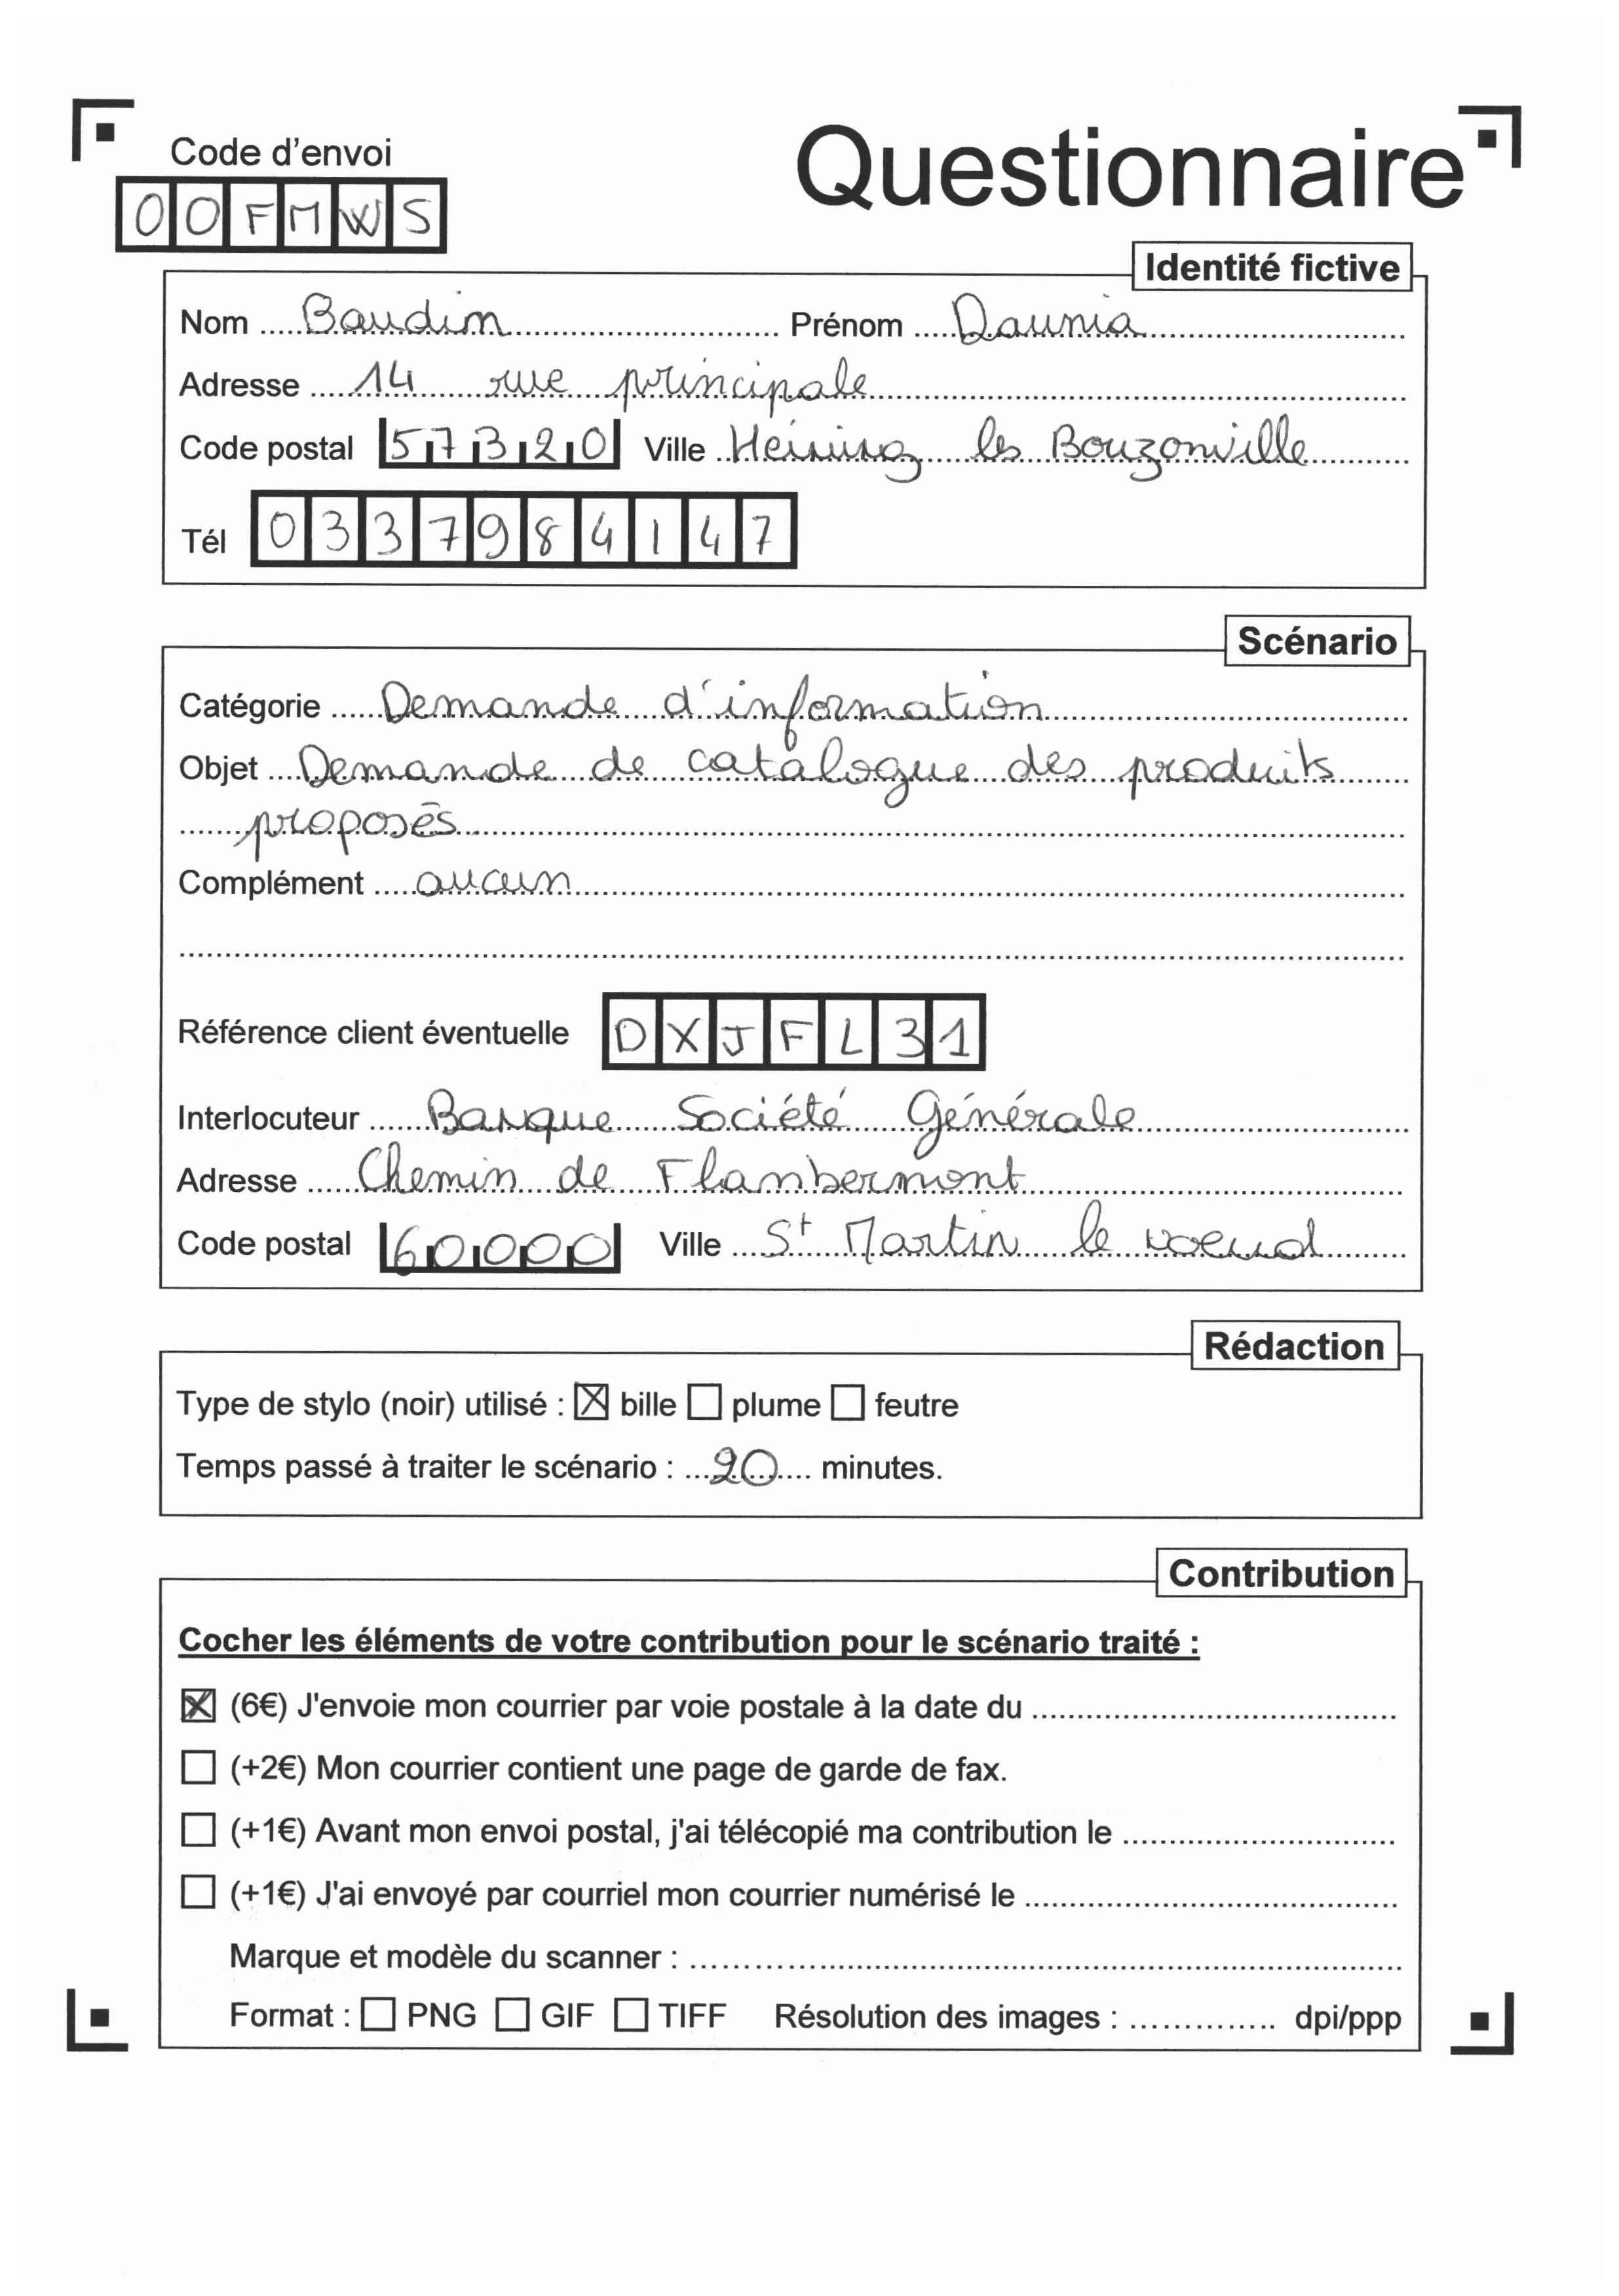 Code d'envoi
Questionnaire
OOFMWS
Identité fictive
Nom Baudin Prénom Daunia
Adresse 14 rue principale
Code postal 57320 Ville Heining les Bouzonville
Tél 0337984147
Scénario
Catégorie Demande d'information
Objet Demande de catalogue des produits
proposés
Complément aucun
Référence client éventuelle DXJFL31
Interlocuteur Banque Société Générale
Adresse Chemin de Flambermont
Code postal 60000 Ville St Martin le noeud
Rédaction
Type de stylo (noir) utilisé : bille plume feutre
Temps passé à traiter le scénario : 20 minutes.
Contribution
Cocher les éléments de votre contribution pour le scénario traité :
(6€) J'envoie mon courrier par voie postale à la date du
(+2€) Mon courrier contient une page de garde de fax.
(+1€) Avant mon envoi postal, j'ai télécopié ma contribution le
(+1€) J'ai envoyé par courriel mon courrier numérisé le
Marque et modèle du scanner :
Format : PNG GIF TIFF Résolution des images : dpi/ppp